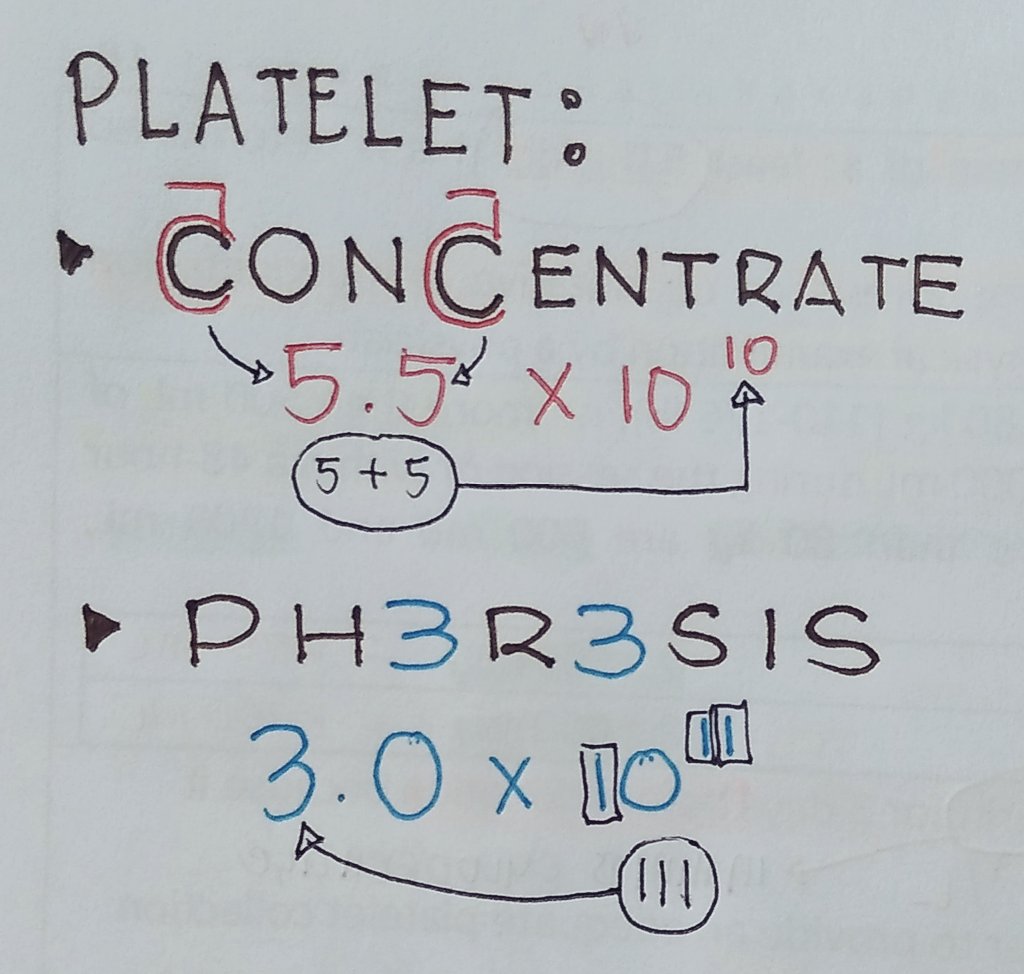 PLATELET:
▶ CONCENTRATE
5.5 x 10¹⁰
5 + 5
▶ PH3R3SIS
3.0 x 10¹¹
III